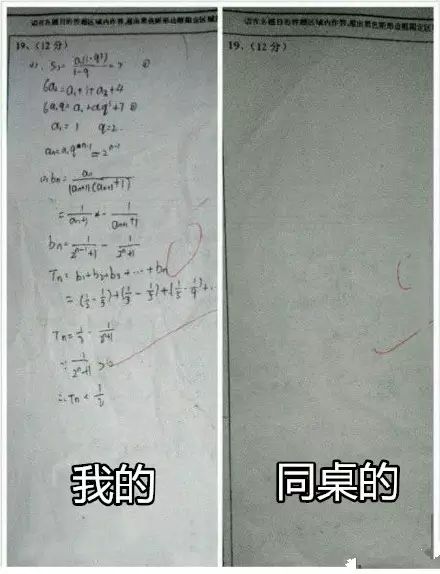 请在各题目的答题区域内作答,超出黑色矩形边框限定区域
19、(12分)
S₃ = a₁(1-q³)/1-q = 7 ①
6a₂ = a₁+1+a₃+4
6a₁q = a₁+a₁q²+7 ②
a₁ = 1 q = 2
aₙ = a₁qⁿ⁻¹ = 2ⁿ⁻¹
bₙ = aₙ/(aₙ+1)(aₙ₊₁+1)
= 1/aₙ+1 - 1/aₙ₊₁+1
bₙ = 1/2ⁿ⁻¹+1 - 1/2ⁿ+1
Tₙ = b₁+b₂+b₃+…+bₙ
= (1/2-1/3)+(1/3-1/5)+(1/5-1/9)+…
Tₙ = 1/2 - 1/2ⁿ+1
∵ 1/2ⁿ+1 > 0
∴ Tₙ < 1/2
我的
请在各题目的答题区域内作答,超出黑色矩形边框限定区域
19、(12分)
同桌的